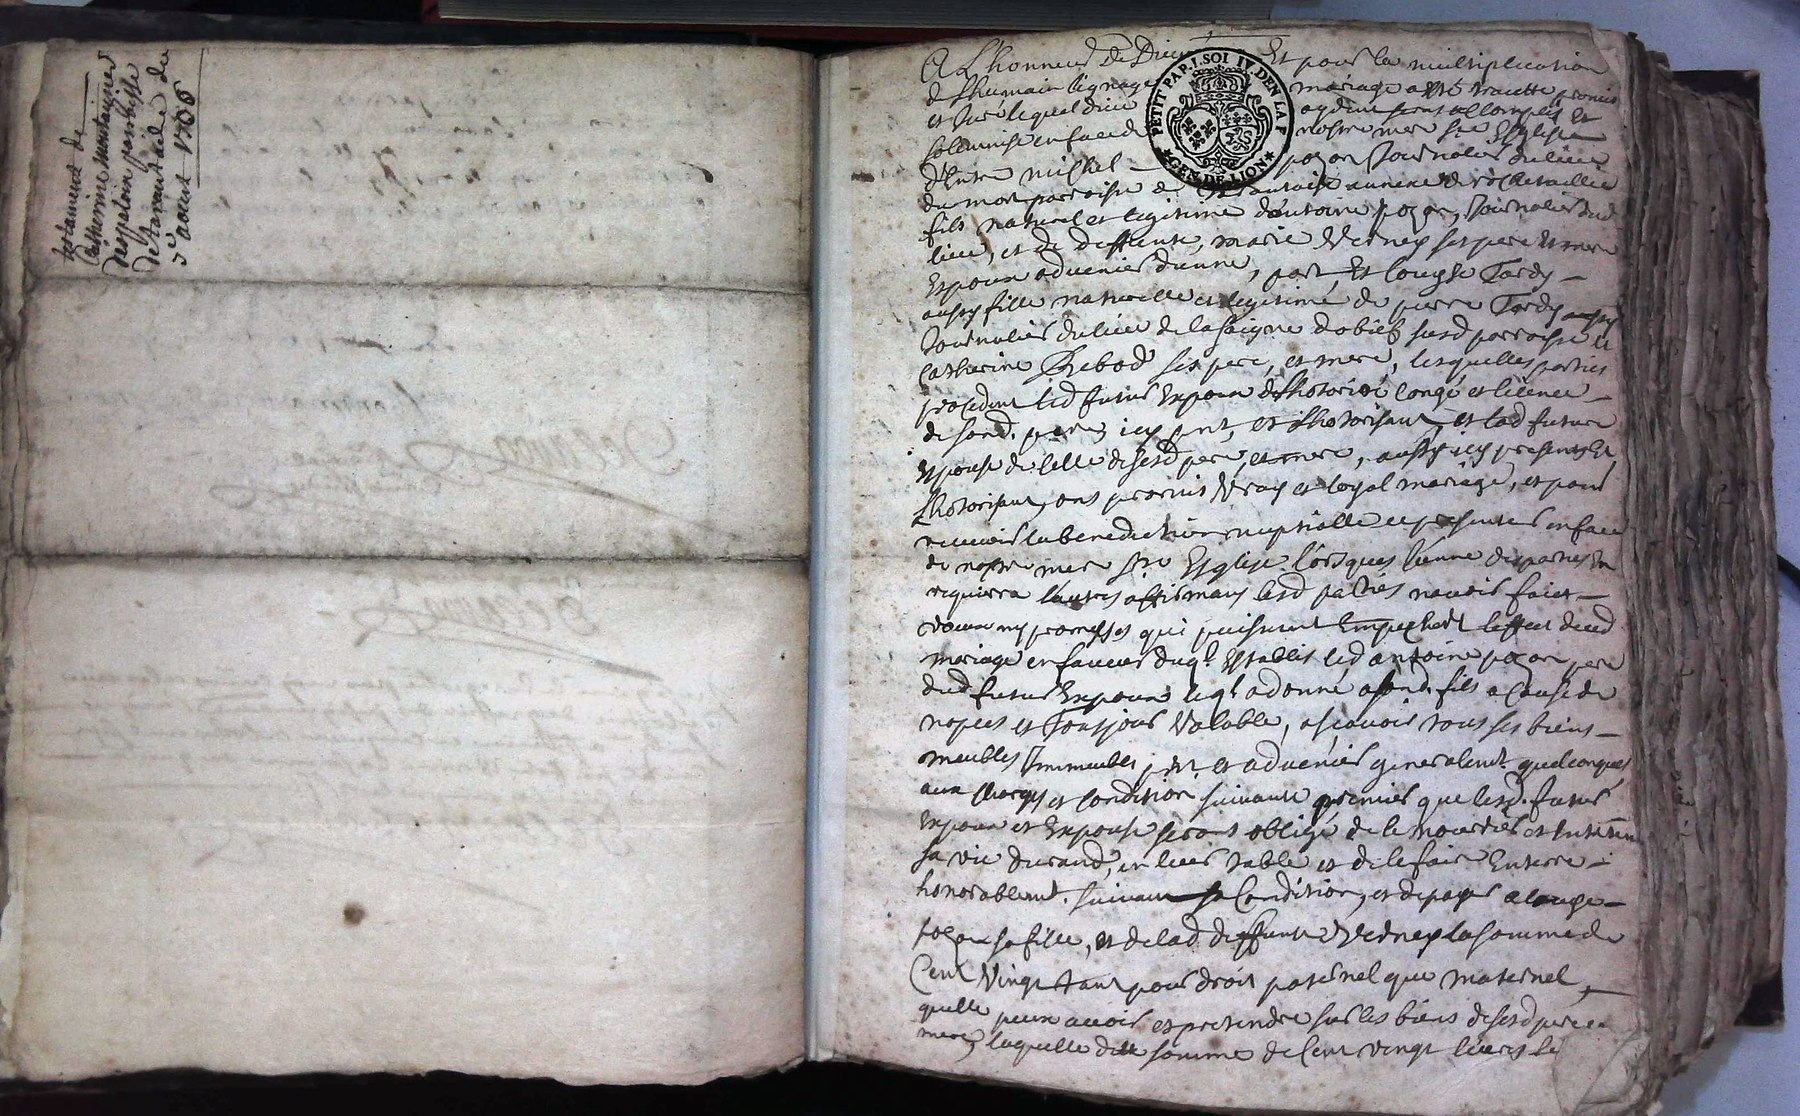 testament de
Catherine montaignier
paroisse
de tarantaize du
5e aoust 1706
PETIT PAP. I. SOL IV. DEN LA F
GEN. DE LION
A Lhonneur de Dieu Et pour la multiplication
de Lhumain lignage mariage a esté traitté promis
et Juré lequel dieu aydant sera accomply Et
solemnisé en face de nostre mere Ste Esglise
d'Entre michel pozon Journalier du lieu
du mon parroisse de annexe de rochetaillée
fils naturel et legitime d'antoine pozon, Journalier dud
lieu, et de deffunte, marie Verney ses pere Et mere
Espoux advenir d'une, part, Et louyse Tardy
aussy fille naturelle et legitime de pierre Tardy aussy
Journalier du lieu de la faigne susd parroisse et
Catherine Rebod ses pere, et mere, lesquelles parties
procedant led futur Espoux de Lhotorité congé et licence
de sond. pere, icy pnt, et Lhotorisant, et lad future
Espouse de celle de sesd pere, et mere, aussy icy presents Et
Lhotorisant, ont promis Vray et loyal mariage, et pour
recevoir la benediction nuptialle se presenter en face
de nostre mere Ste Esglise lorsques l'unne des parties En
requerra l'autre affirmant lesd parties n'avoir faict
vœux ny promesses qui puissent Empecher leffect dud
mariage en faveur duql Establis led antoine pozon pere
dud futur Espoux leql a donné a sond. fils a cause de
nopces et Tousjours Valable, ascavoir tous ses biens
meubles Immeubles pnt. et advenir generalemt. quelconques
aux charges et condition suivante premier que lesd. futur
Espoux et Espouse seront obligé de le nourrir et Entretenir
sa vie durand, en leur table et de le faire Enterre
honorablemt. suivant sa Condition, et de payer a louyse
pozon sa fille, et de lad. deffunte Verney la somme de
Cent Vingt tant pour droit paternel que maternel,
quelle peux avoir et pretendre sur les biens de sesd pere et
mere, laquelle ditte somme de Cent vingt livres le